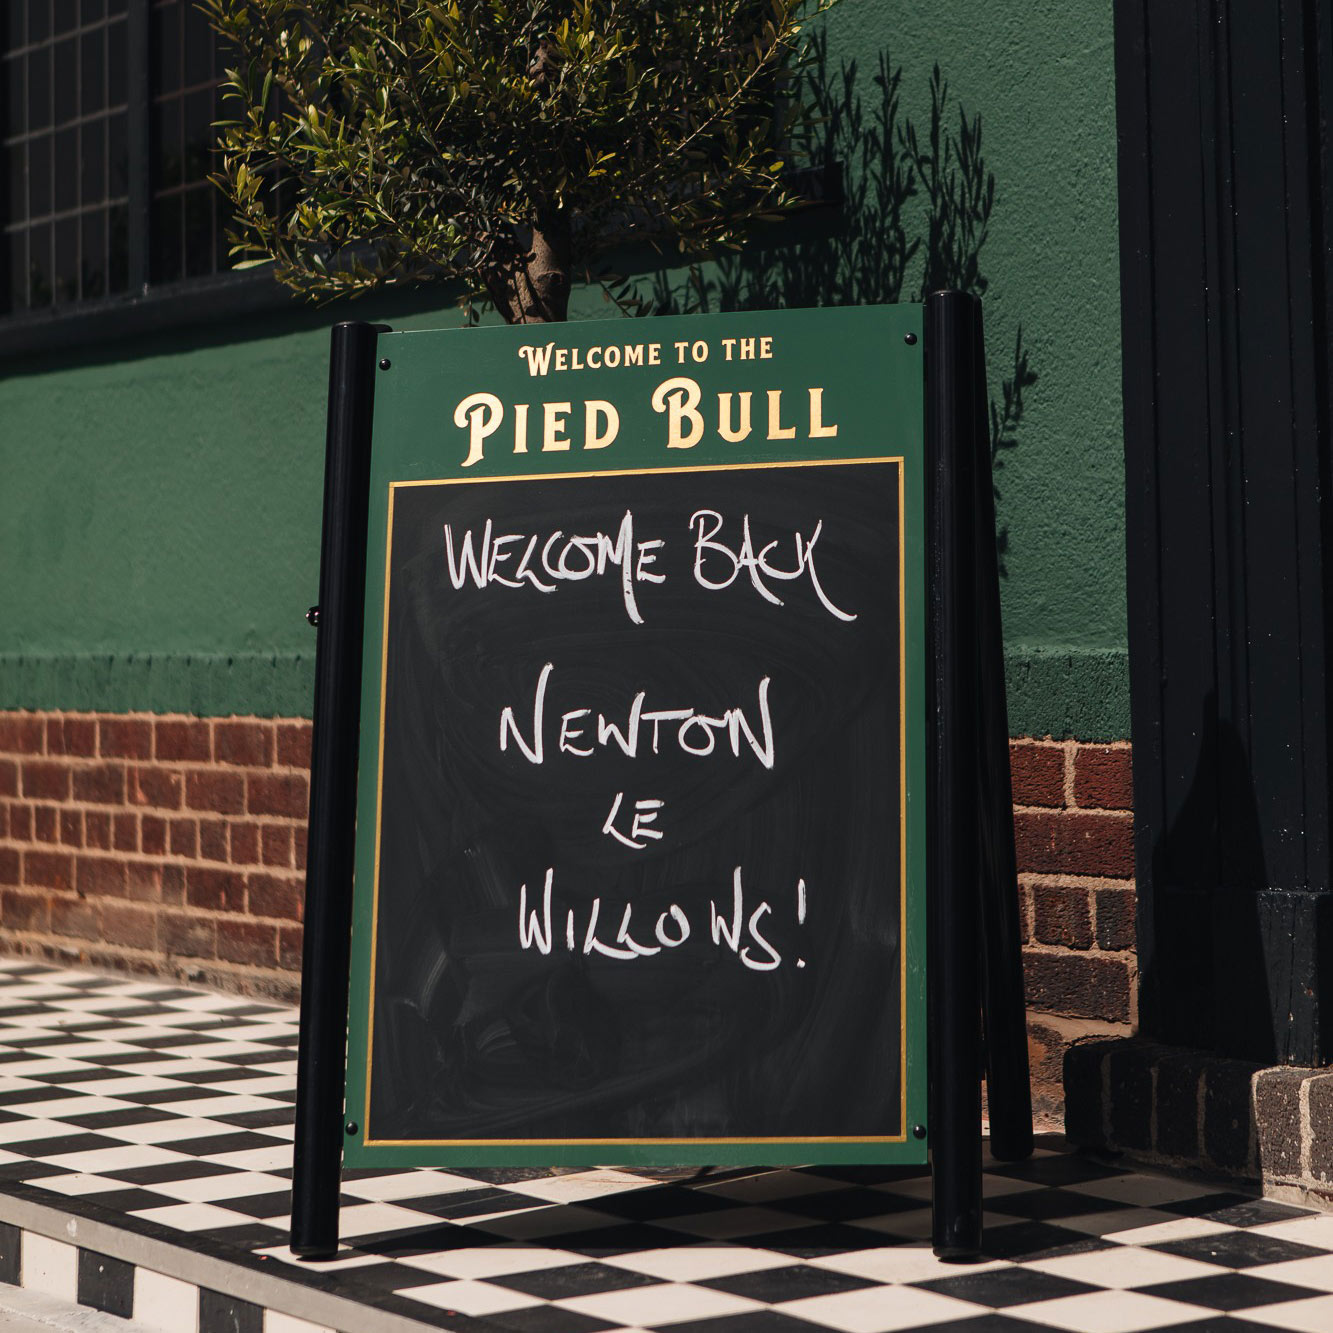 Welcome to the
Pied Bull
Welcome Back
Newton
Le
Willows!